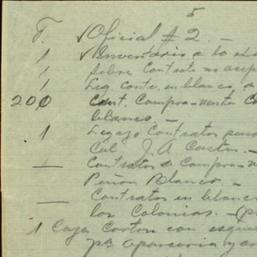 5
F. √ Oficial # 2 -
1 √ Inventario a la
1 Sobre Contrato no acep
1 Leg. contr. en blanco, d
200 Cont. Compra-venta Co
blanco. -
1 Legajo Contratos
Cal J. A.
— Contratos de Compra-
Peñon Blanco. -
— Contratos en blanc
los Colonias. - (p
1 Caja Carton con esque
pa aparceria y